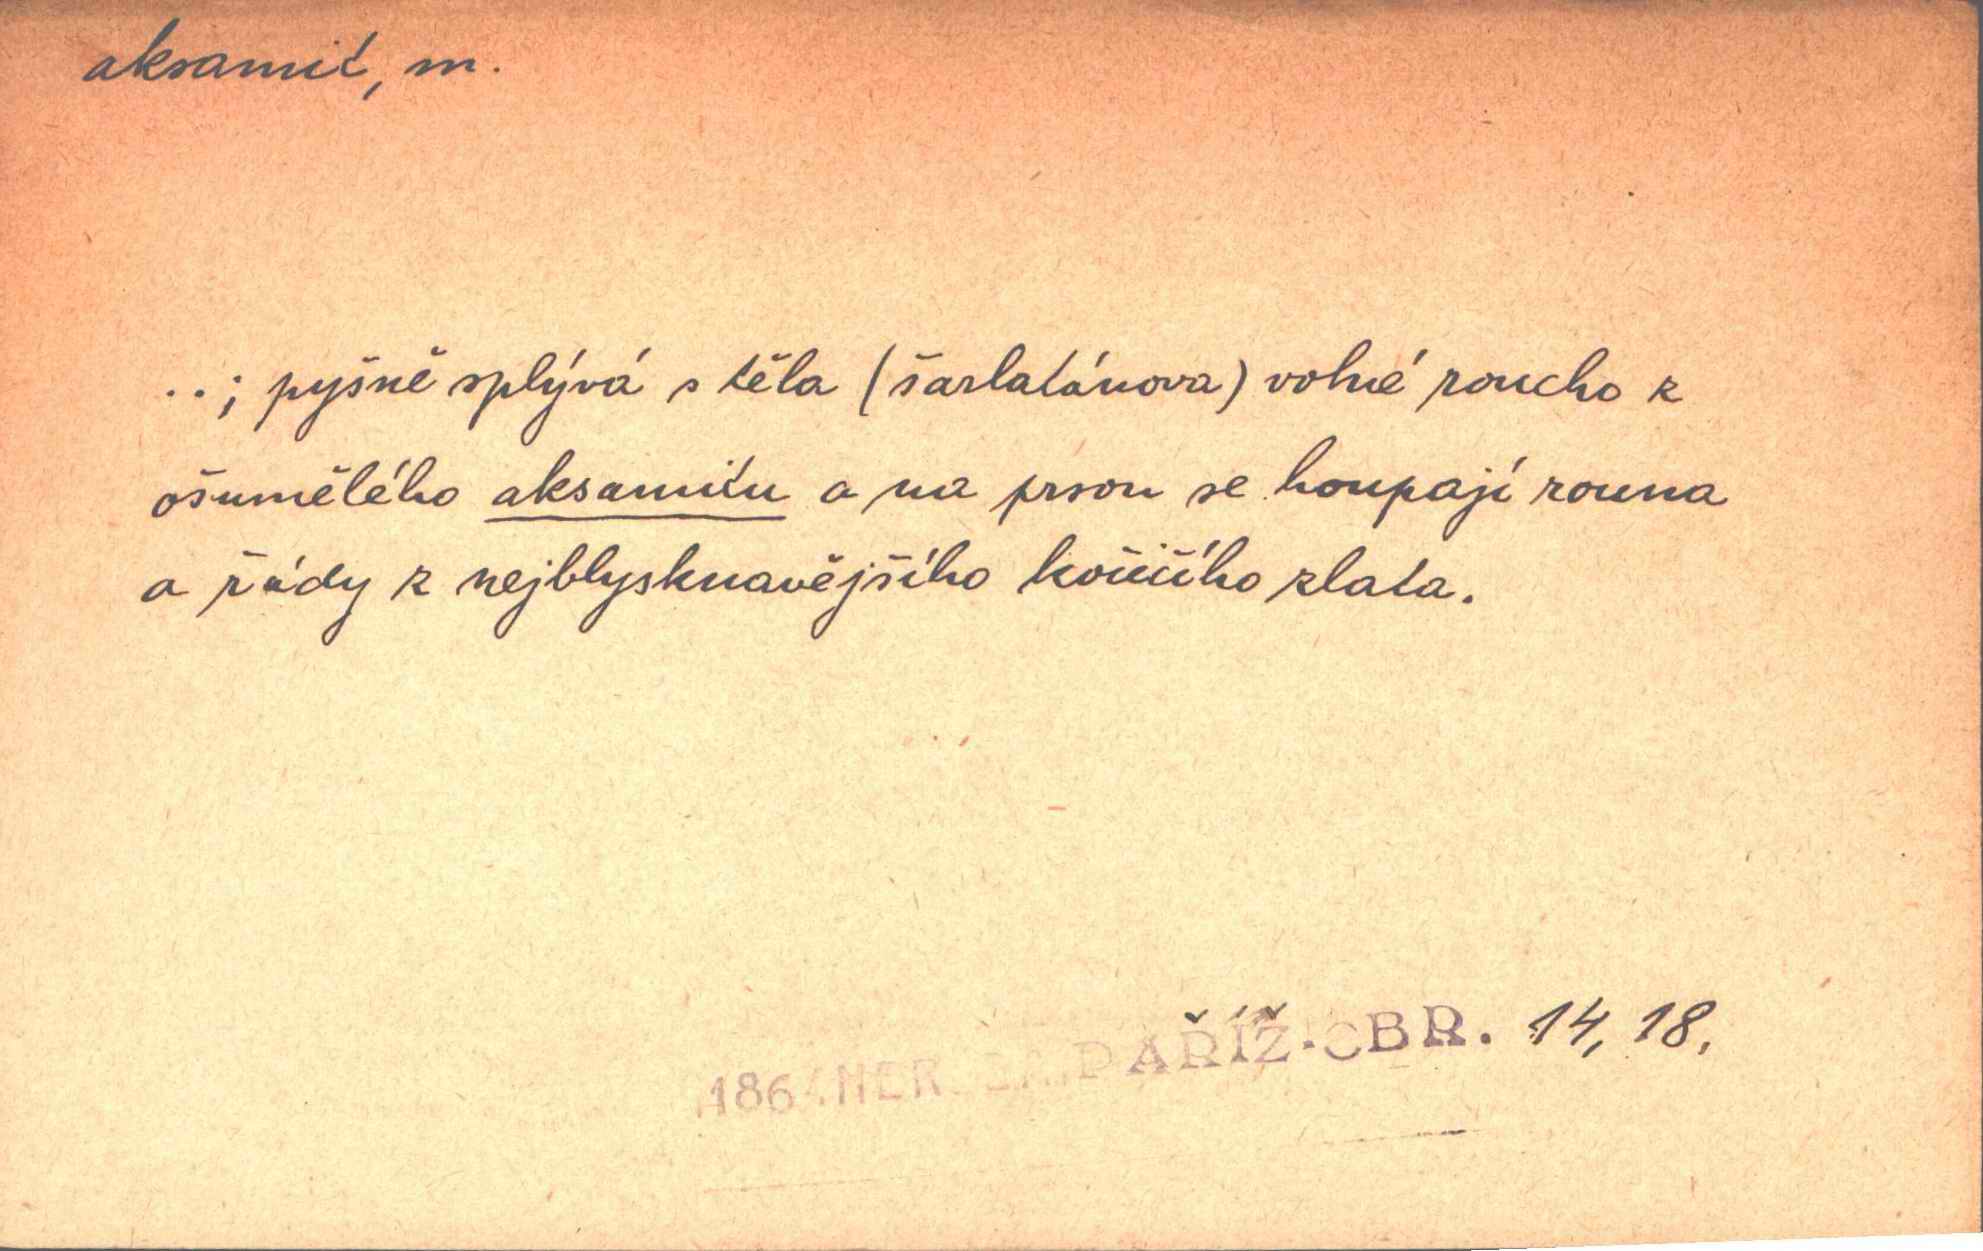 aksamit, m.
..; pyšně splývá s těla (šarlatánova) volné roucho z
ošumělého aksamitu a na prsou se houpají rouna
a řády z nejblysknavějšího kočičího zlata.
PAŘÍŽ.OBR. 14, 18.